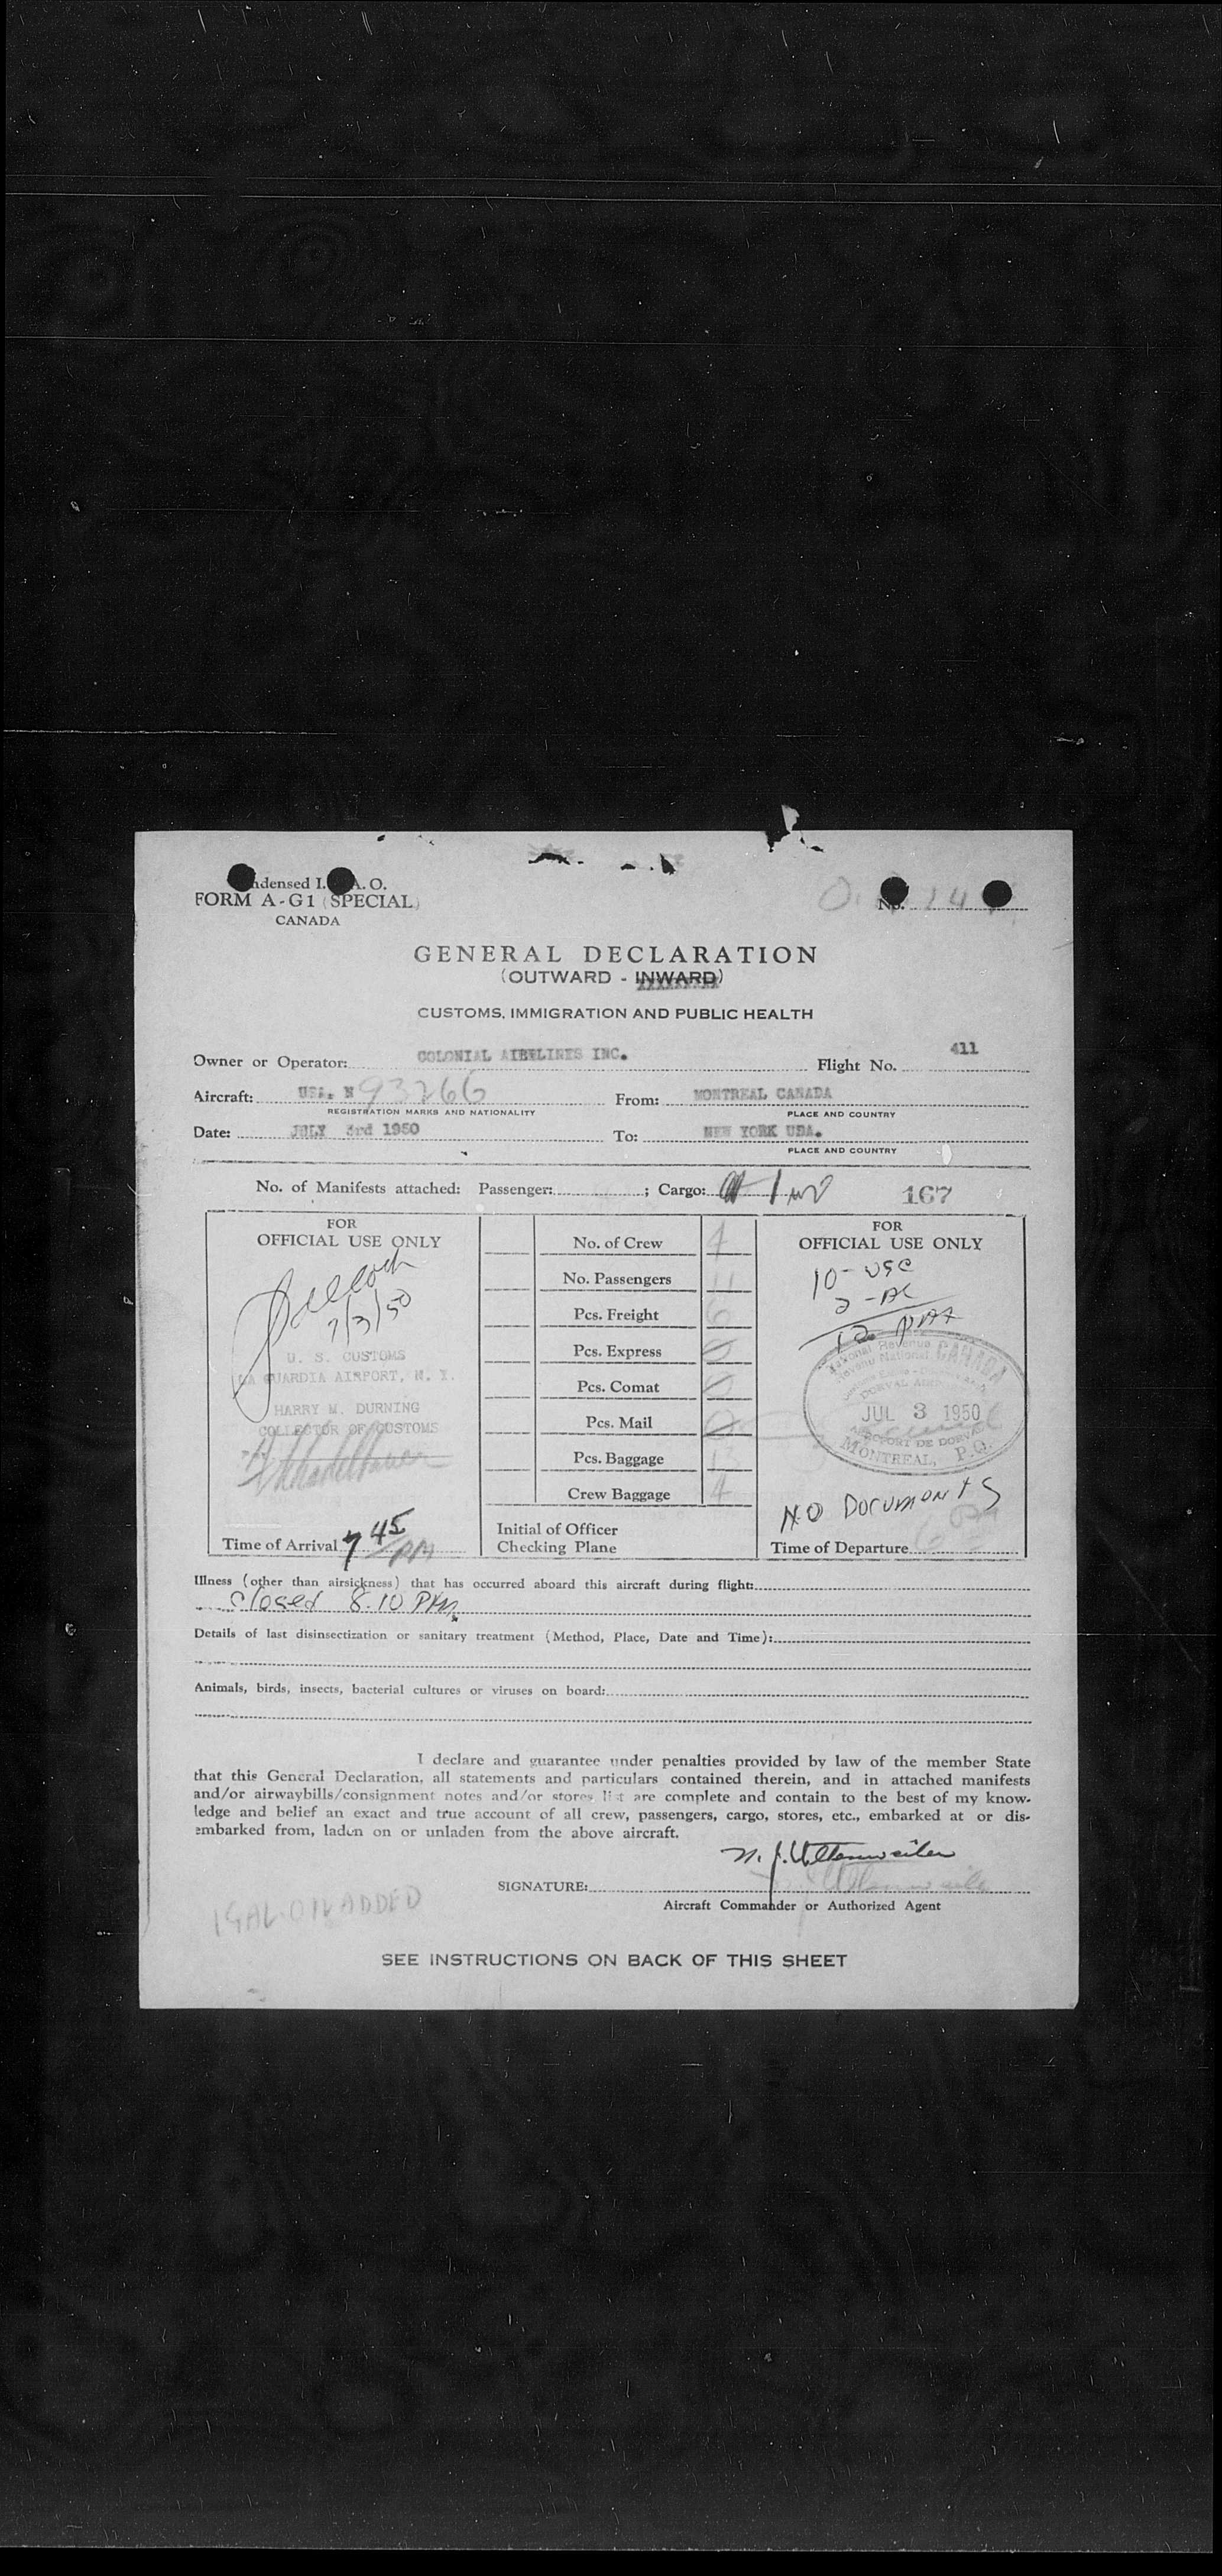 ndensed I. A. O.
FORM A-G1 (SPECIAL)
CANADA
No.
GENERAL DECLARATION
(OUTWARD - INWARD)
CUSTOMS, IMMIGRATION AND PUBLIC HEALTH
Owner or Operator: COLONIAL AIRLINES INC. Flight No. 411
Aircraft: USA. N 93266 From: MONTREAL CANADA
REGISTRATION MARKS AND NATIONALITY PLACE AND COUNTRY
Date: JULY 3rd 1950 To: NEW YORK USA.
PLACE AND COUNTRY
No. of Manifests attached: Passenger: ; Cargo: 167
FOR
OFFICIAL USE ONLY
7/3/50
U. S. CUSTOMS
LA GUARDIA AIRPORT, N. Y.
HARRY M. DURNING
COLLECTOR OF CUSTOMS
Time of Arrival 7 45 PM
No. of Crew 4
No. Passengers 11
Pcs. Freight 6
Pcs. Express 0
Pcs. Comat 0
Pcs. Mail 0
Pcs. Baggage 13
Crew Baggage 4
Initial of Officer
Checking Plane
FOR
OFFICIAL USE ONLY
10 - USC
2 - AC
12
National Revenue CANADA
Revenu National
DORVAL AIR
JUL 3 1950
AEROPORT DE DORVAL
MONTREAL, P.Q.
NO DOCUMENTS
Time of Departure
Illness (other than airsickness) that has occurred aboard this aircraft during flight:
Closed 8.10 PM.
Details of last disinsectization or sanitary treatment (Method, Place, Date and Time):
Animals, birds, insects, bacterial cultures or viruses on board:
I declare and guarantee under penalties provided by law of the member State
that this General Declaration, all statements and particulars contained therein, and in attached manifests
and/or airwaybills/consignment notes and/or stores list are complete and contain to the best of my know-
ledge and belief an exact and true account of all crew, passengers, cargo, stores, etc., embarked at or dis-
embarked from, laden on or unladen from the above aircraft.
SIGNATURE:
Aircraft Commander or Authorized Agent
1 GAL. OIL ADDED
SEE INSTRUCTIONS ON BACK OF THIS SHEET